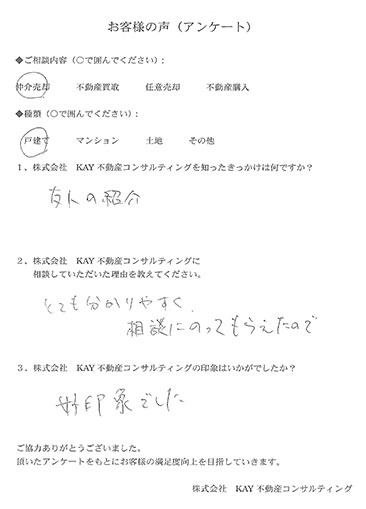 お客様の声（アンケート）
◆ご相談内容（○で囲んでください）:
仲介売却 不動産買取 任意売却 不動産購入
◆種類（○で囲んでください）:
戸建て マンション 土地 その他
1、株式会社 KAY不動産コンサルティングを知ったきっかけは何ですか？
友人の紹介
2、株式会社 KAY不動産コンサルティングに
相談していただいた理由を教えてください。
とても分かりやすく、
相談にのってもらえたので
3、株式会社 KAY不動産コンサルティングの印象はいかがでしたか？
好印象でした
ご協力ありがとうございました。
頂いたアンケートをもとにお客様の満足度向上を目指していきます。
株式会社 KAY不動産コンサルティング